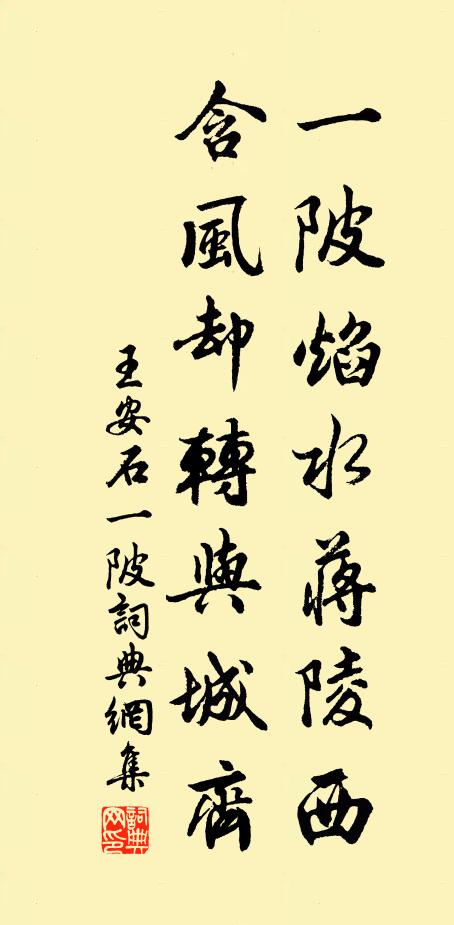 一陂焰水蔣陵西
含風却轉與城齊
王安石一陂詞典網集
詞典網印